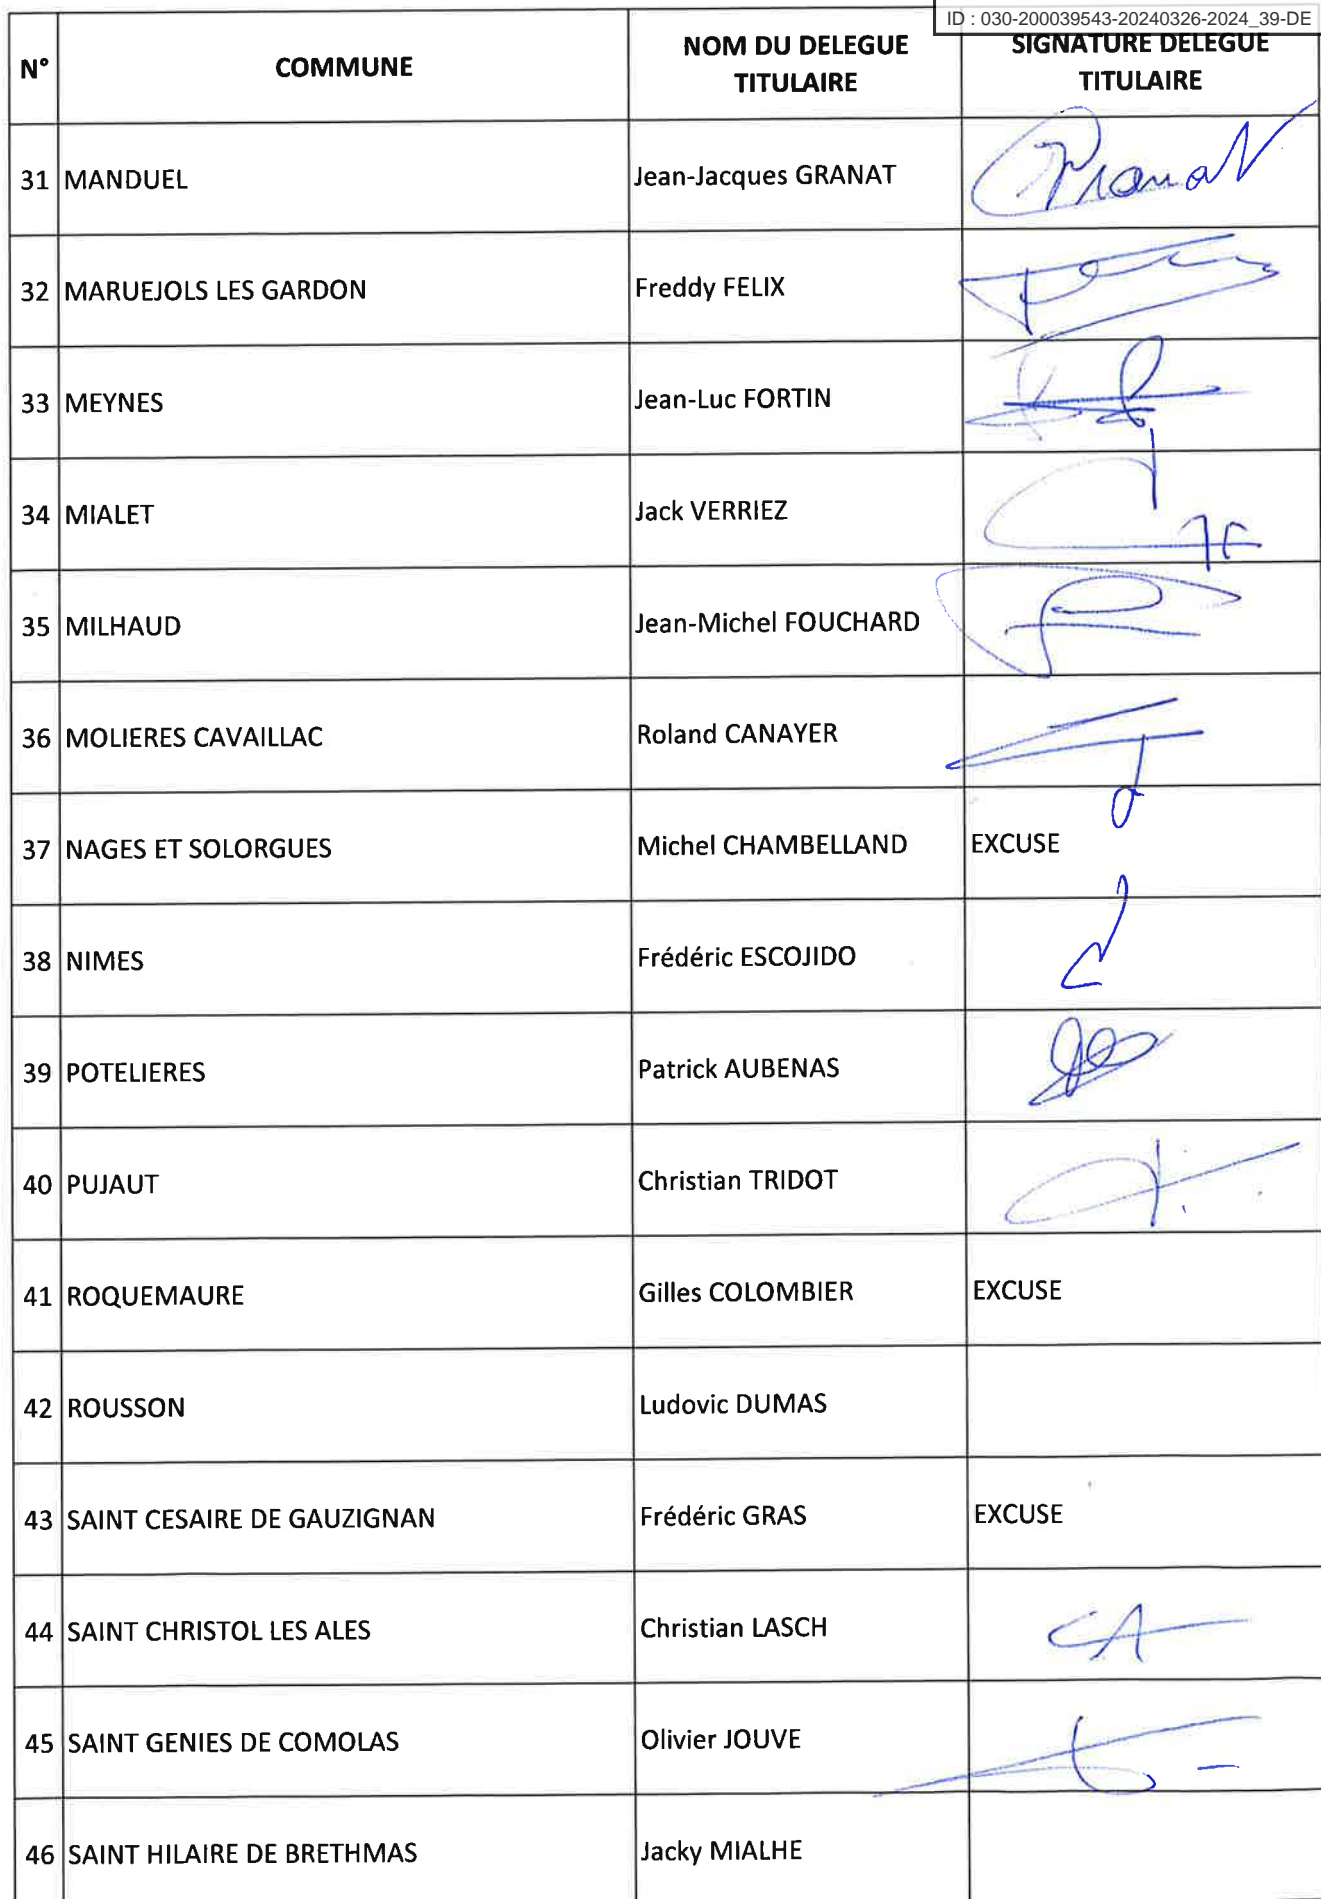 ID : 030-200039543-20240326-2024_39-DE
N° COMMUNE NOM DU DELEGUE TITULAIRE SIGNATURE DELEGUE TITULAIRE
31 MANDUEL Jean-Jacques GRANAT
32 MARUEJOLS LES GARDON Freddy FELIX
33 MEYNES Jean-Luc FORTIN
34 MIALET Jack VERRIEZ
35 MILHAUD Jean-Michel FOUCHARD
36 MOLIERES CAVAILLAC Roland CANAYER
37 NAGES ET SOLORGUES Michel CHAMBELLAND EXCUSE
38 NIMES Frédéric ESCOJIDO
39 POTELIERES Patrick AUBENAS
40 PUJAUT Christian TRIDOT
41 ROQUEMAURE Gilles COLOMBIER EXCUSE
42 ROUSSON Ludovic DUMAS
43 SAINT CESAIRE DE GAUZIGNAN Frédéric GRAS EXCUSE
44 SAINT CHRISTOL LES ALES Christian LASCH
45 SAINT GENIES DE COMOLAS Olivier JOUVE
46 SAINT HILAIRE DE BRETHMAS Jacky MIALHE